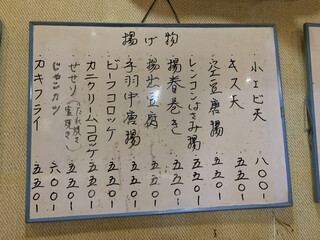 揚げ物
小エビ天 八〇〇-
キス天 五五〇-
空豆唐揚 五五〇-
レンコンはさみ揚 五五〇-
揚春巻き 五五〇-
揚出豆腐 五五〇-
手羽中唐揚 五五〇-
ビーフコロッケ 五五〇-
カニクリームコロッケ 五五〇-
せせり(たれ焼き 塩焼き) 五五〇-
じゃこカツ 六〇〇-
カキフライ 五五〇-